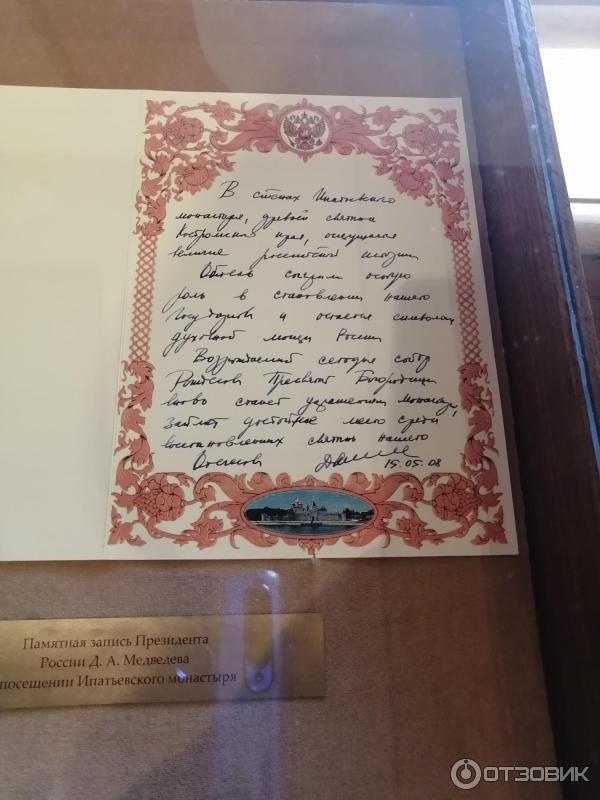 В стенах Ипатьевского
монастыря, древней святыни
Костромского края, ощущается
величие российской истории
Обитель сыграла особую
роль в становлении нашего
Государства и остается символом
духовной мощи России
Возрождаемый сегодня собор
Рождества Пресвятой Богородицы
вновь станет украшением монастыря,
займет достойное место среди
восстановленных святынь нашего
Отечества 15.05.08
Памятная запись Президента
России Д. А. Медведева
посещении Ипатьевского монастыря
ОТЗОВИК